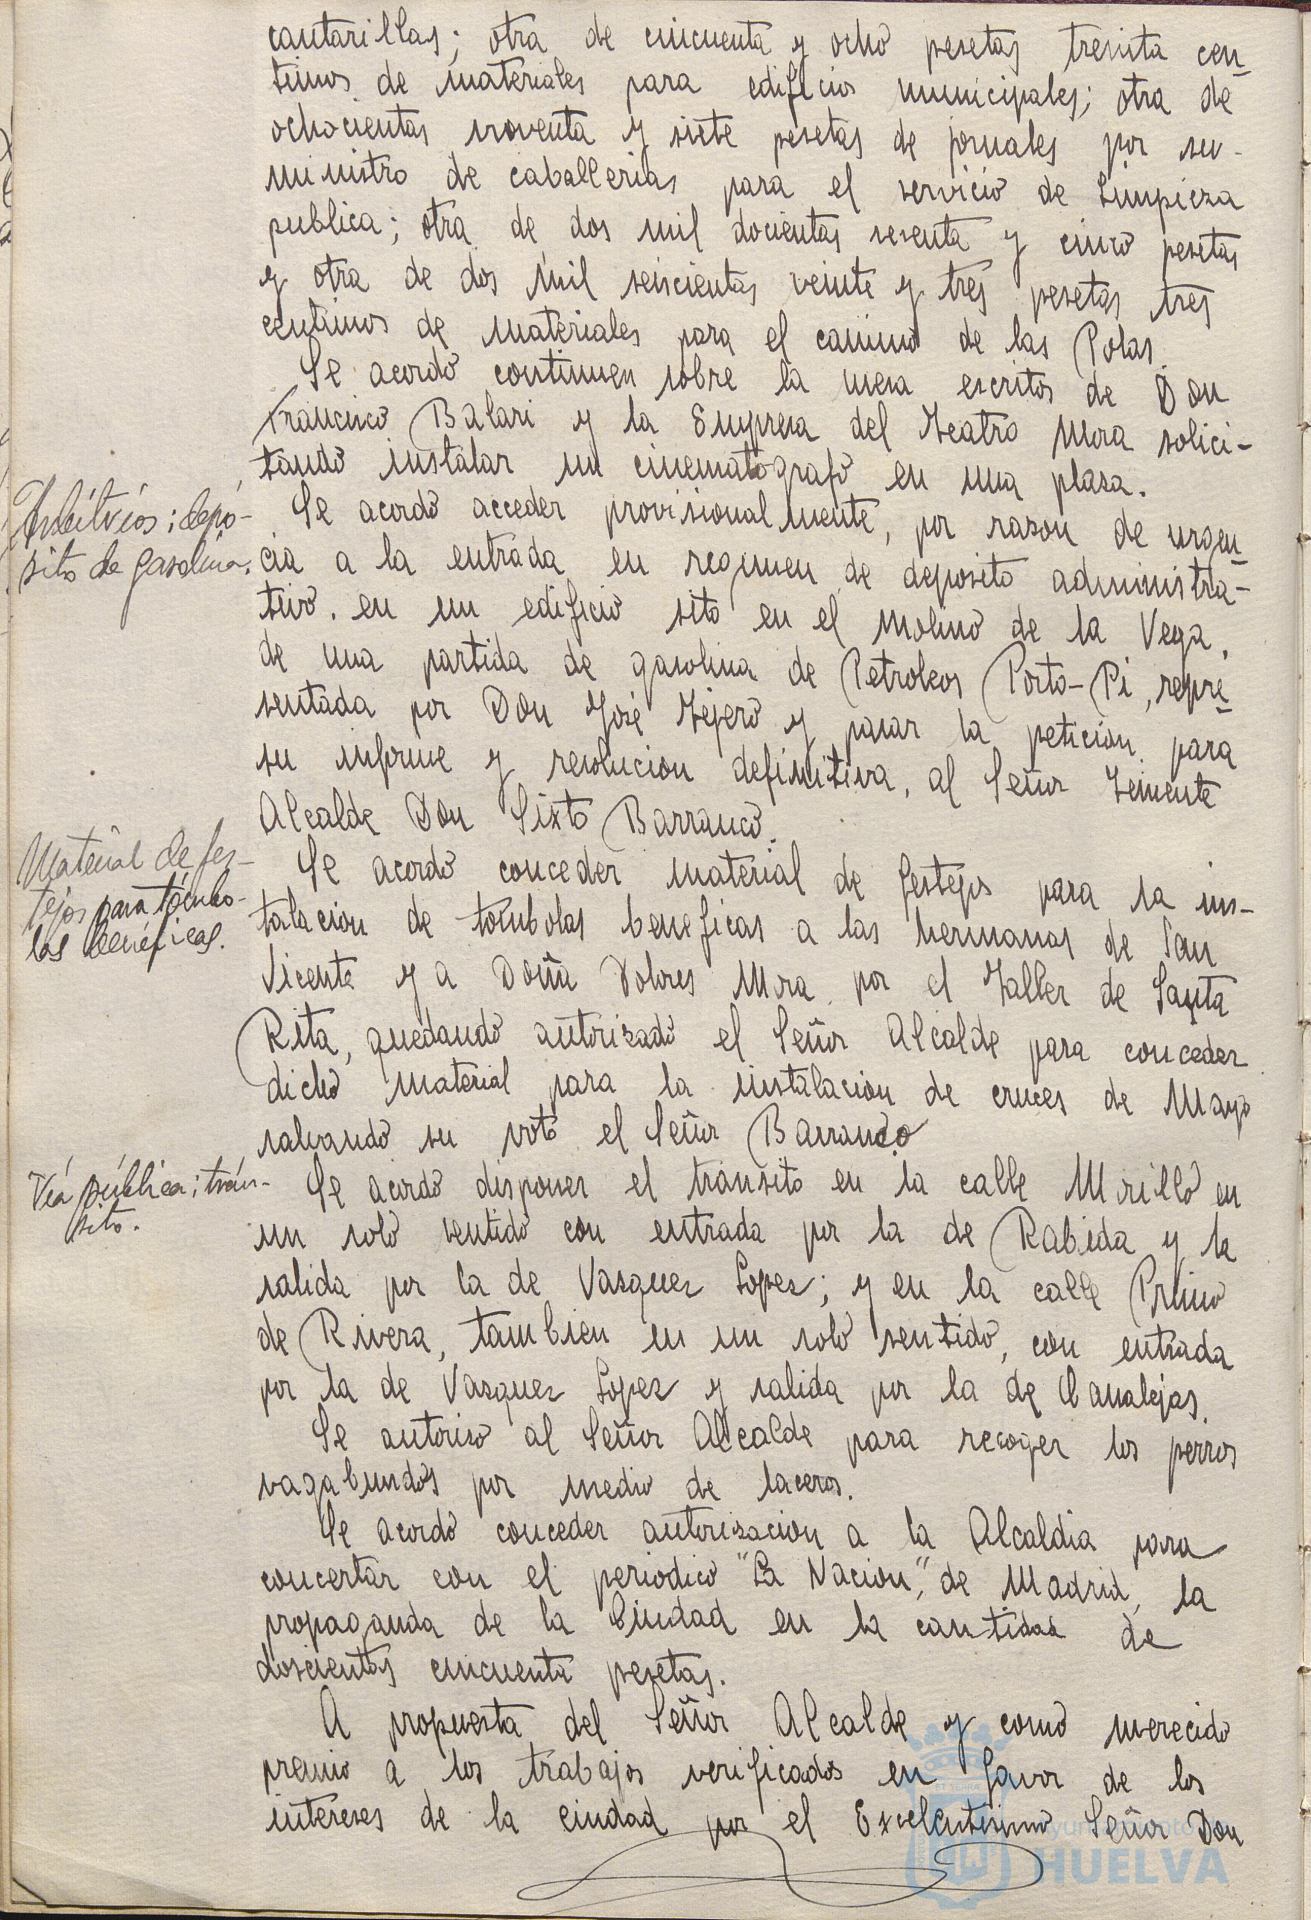 cantarillas; otra de cincuenta y ocho pesetas treinta cen-
timos de materiales para edificios municipales; otra de
ochocientas noventa y siete pesetas de jornales por su-
ministro de caballerias para el servicio de Limpieza
publica; otra de dos mil docientas sesenta y cinco pesetas
y otra de dos mil seiscientas veinte y tres pesetas tres
centimos de materiales para el camino de las Polas.
Se acordó continuen sobre la mesa escritos de Don
Francisco Balari y la Empresa del Teatro Mora solici-
tando instalar un cinematografo en una plaza.
Arbítrios; depó-
sito de gasolina.
Se acordó acceder provisionalmente, por razon de urgen-
cia a la entrada en regimen de deposito administra-
tivo. en un edificio sito en el Molino de la Vega,
de una partida de gasolina de Petroleos Porto-Pi, repre-
sentada por Don José Tejero y pasar la peticion para
su informe y resolucion definitiva, al Señor Teniente
Alcalde Don Sixto Barranco.
Material de fes-
tejos para tómbo-
las benéficas.
Se acordó conceder material de festejos para la ins-
talacion de tombolas beneficas a las hermanas de San
Vicente y a Doña Dolores Mora por el Taller de Santa
Rita, quedando autorizado el Señor Alcalde para conceder
dicho material para la instalacion de cruces de Mayo
salvando su voto el Señor Barranco
Vía pública; trán-
sito.
Se acordó disponer el transito en la calle Murillo en
un solo sentido con entrada por la de Rabida y la
salida por la de Vasquez Lopez; y en la calle Primo
de Rivera, tambien en un solo sentido, con entrada
por la de Vazquez Lopez y salida por la de Canalejas.
Se autorizó al Señor Alcalde para recoger los perros
vagabundos por medio de laceros.
Se acordó conceder autorizacion a la Alcaldia para
concertar con el periodico "La Nacion", de Madrid, la
propaganda de la Ciudad en la cantidad de
doscientas cincuenta pesetas.
A propuesta del Señor Alcalde y como merecido
premio a los trabajos verificados en favor de los
intereses de la ciudad por el Excelentisimo Señor Don
Ayuntamiento
HUELVA